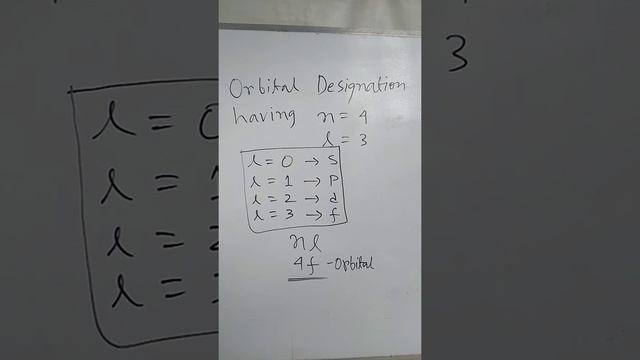 Orbital Designation
having n = 4
l = 3
l = 0 → S
l = 1 → P
l = 2 → d
l = 3 → f
nl
4f - Orbital